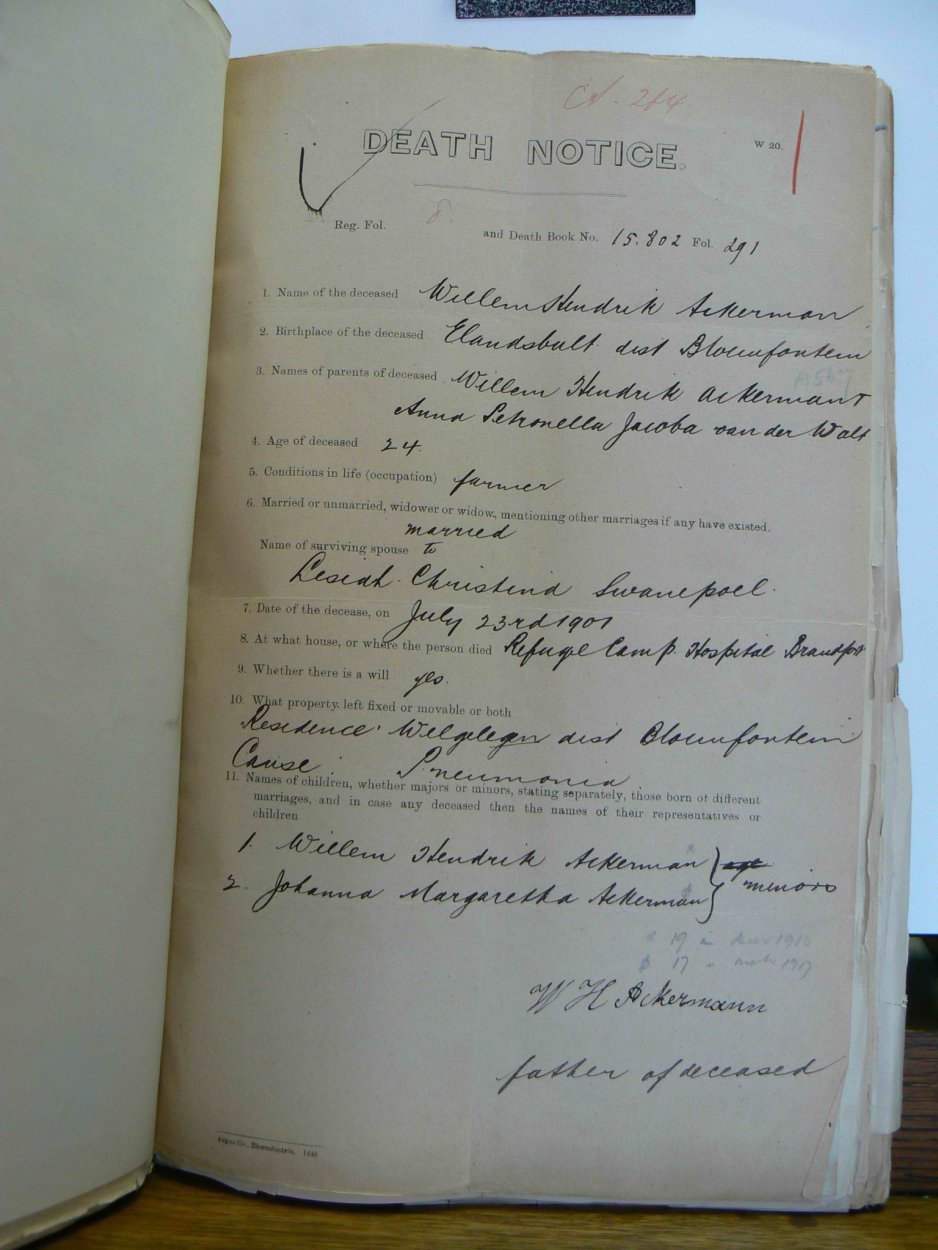 DEATH NOTICE.
W 20.
Reg. Fol. 8. and Death Book No. 15.802 Fol. 291
1. Name of the deceased Willem Hendrik Ackerman
2. Birthplace of the deceased Elandsbult dist Bloemfontein
3. Names of parents of deceased Willem Hendrik Ackerman &
Anna Petronella Jacoba van der Walt
4. Age of deceased 24
5. Conditions in life (occupation) farmer
6. Married or unmarried, widower or widow, mentioning other marriages if any have existed.
married
Name of surviving spouse to
Christina Swanepoel.
7. Date of the decease, on July 23rd 1901
8. At what house, or where the person died Refuge Camp Hospital
9. Whether there is a will yes.
10. What property left fixed or movable or both
Residence Welgelegen dist Bloemfontein
Cause Pneumonia
11. Names of children, whether majors or minors, stating separately, those born of different
marriages, and in case any deceased then the names of their representatives or
children
1. Willem Hendrik Ackerman
minors
2. Johanna Margaretha Ackerman
W H Ackermann
father of deceased
Argus Co., Bloemfontein.